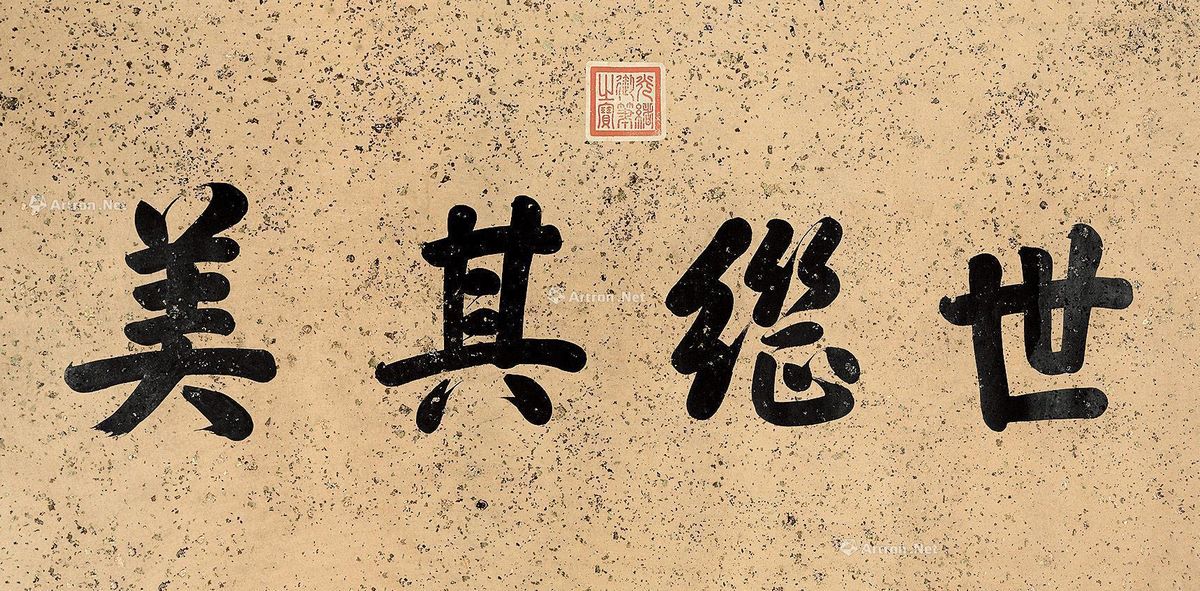 光緒
御筆
之寶
世繼其美
Artron.Net
Artron.Net
Artron.Net